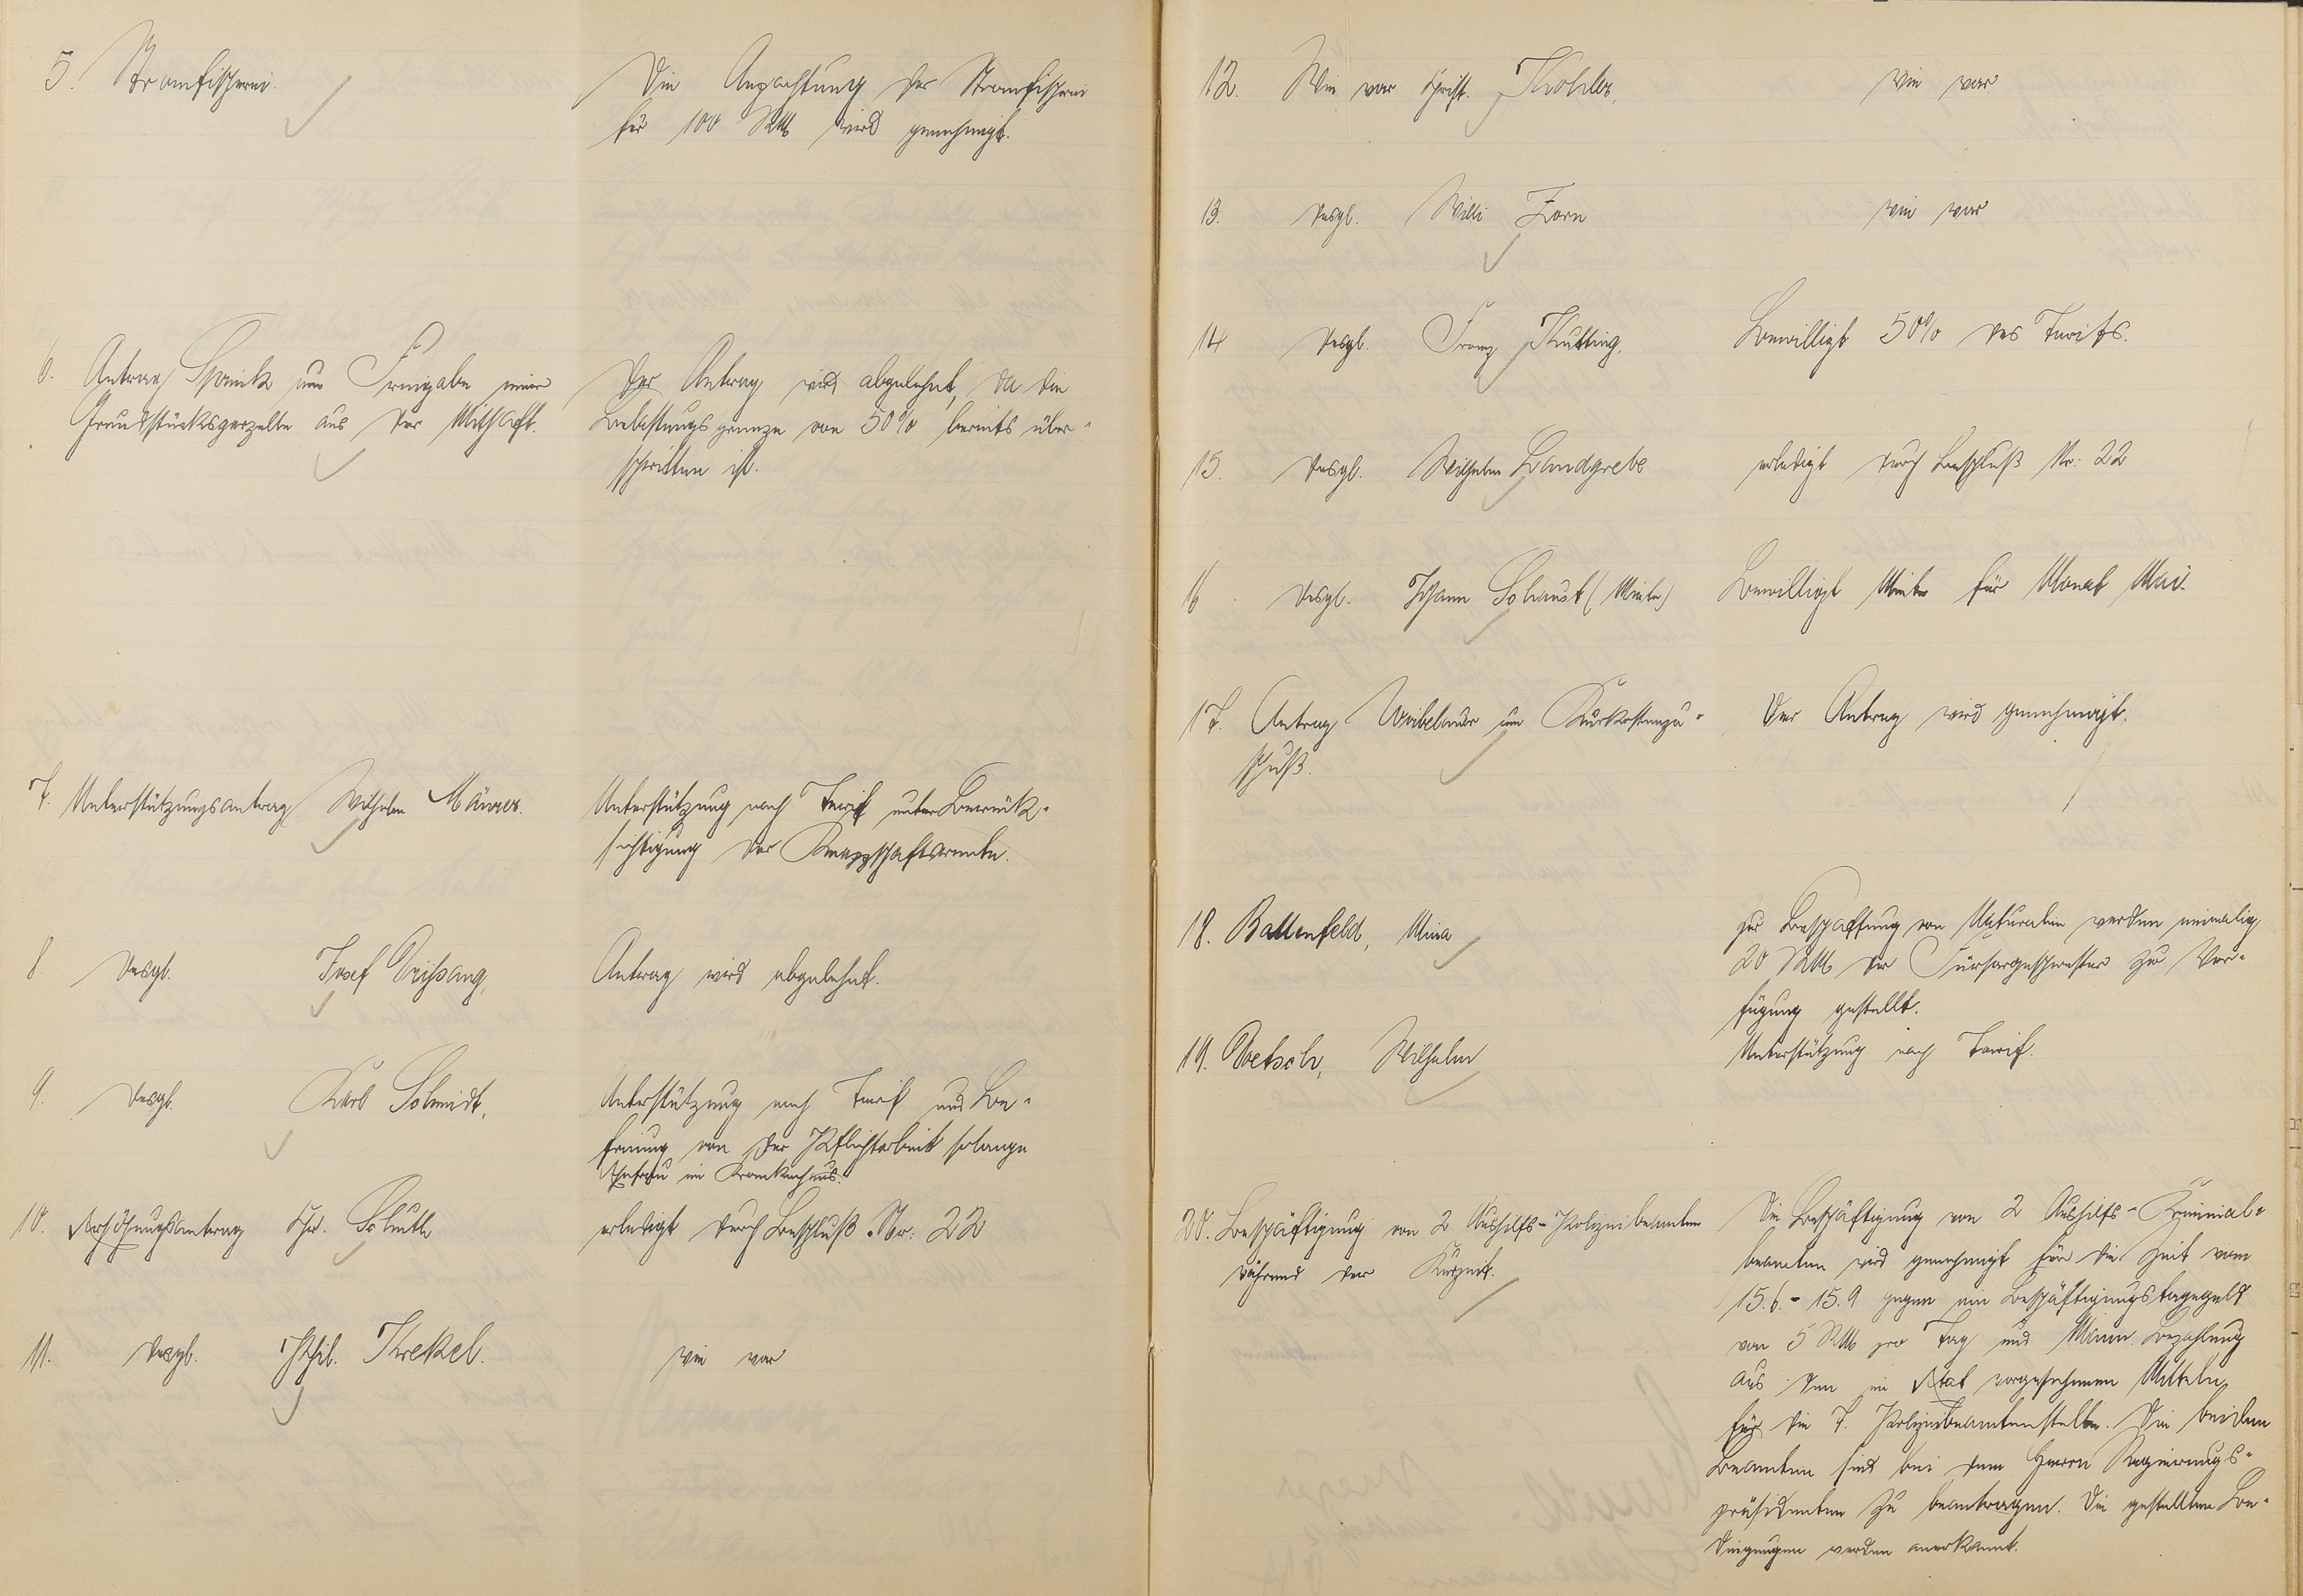 5. Stromfischerei.
Die Anpachtung der Stromfischerei
für 100 RM wird genehmigt.
6. Antrag Spinik um Freigabe einer
Grundstücksparzelle aus der Mithaft.
Der Antrag wird abgelehnt, da die
Belastungsgrenze von 50% bereits über-
schritten ist.
7. Unterstützungsantrag Wilhelm Mäurer.
Unterstützung nach Tarif unter Berück-
sichtigung der Knappschaftsrente.
8 desgl. Josef
Antrag wird abgelehnt.
9. desgl. Karl Schmidt,
Unterstützung nach Tarif und Be-
freiung von der Pflichtarbeit solange
Ehefrau im Krankenhaus.
10. Erhöhungsantrag Chr. Schuth
erledigt durch Beschluß Nr: 22
11. desgl. Phil. Krekel.
wie vor
12. Wie vor Christ. Kohler,
wie vor
13. desgl. Willi Zorn
wie vor
14 desgl. Franz Kutting,
Bewilligt 50% des Tarifs.
15. desgl. Wilhelm Landgrebe
erledigt durch Beschluß Nr: 22
16 desgl. Johann Schaust (Miete)
Bewilligt Miete für Monat Mai.
17. Antrag um Kurkostenzu-
schuß.
Der Antrag wird genehmigt.
18. Battenfeld, Mina
Zur Beschaffung von Naturalien werden einmalig
20 RM der Fürsorgeschwester zur Ver-
fügung gestellt.
19. Oetsch, Wilhelm
Unterstützung nach Tarif.
20. Beschäftigung von 2 Aushilfs-Polizeibeamten
während der Kurzeit.
Die Beschäftigung von 2 Aushilfs-Kriminal-
beamten wird genehmigt für die Zeit vom
15.6.-15.9 gegen ein Beschäftigungstagegeld
von 5 RM pro Tag und Mann. Bezahlung
aus den im Etat vorgesehenen Mitteln
für die 7. Polizeibeamtenstelle. Die beiden
Beamten sind bei dem Herrn Regierungs-
präsidenten zu beantragen. Die gestellten Be-
dingungen werden anerkannt.